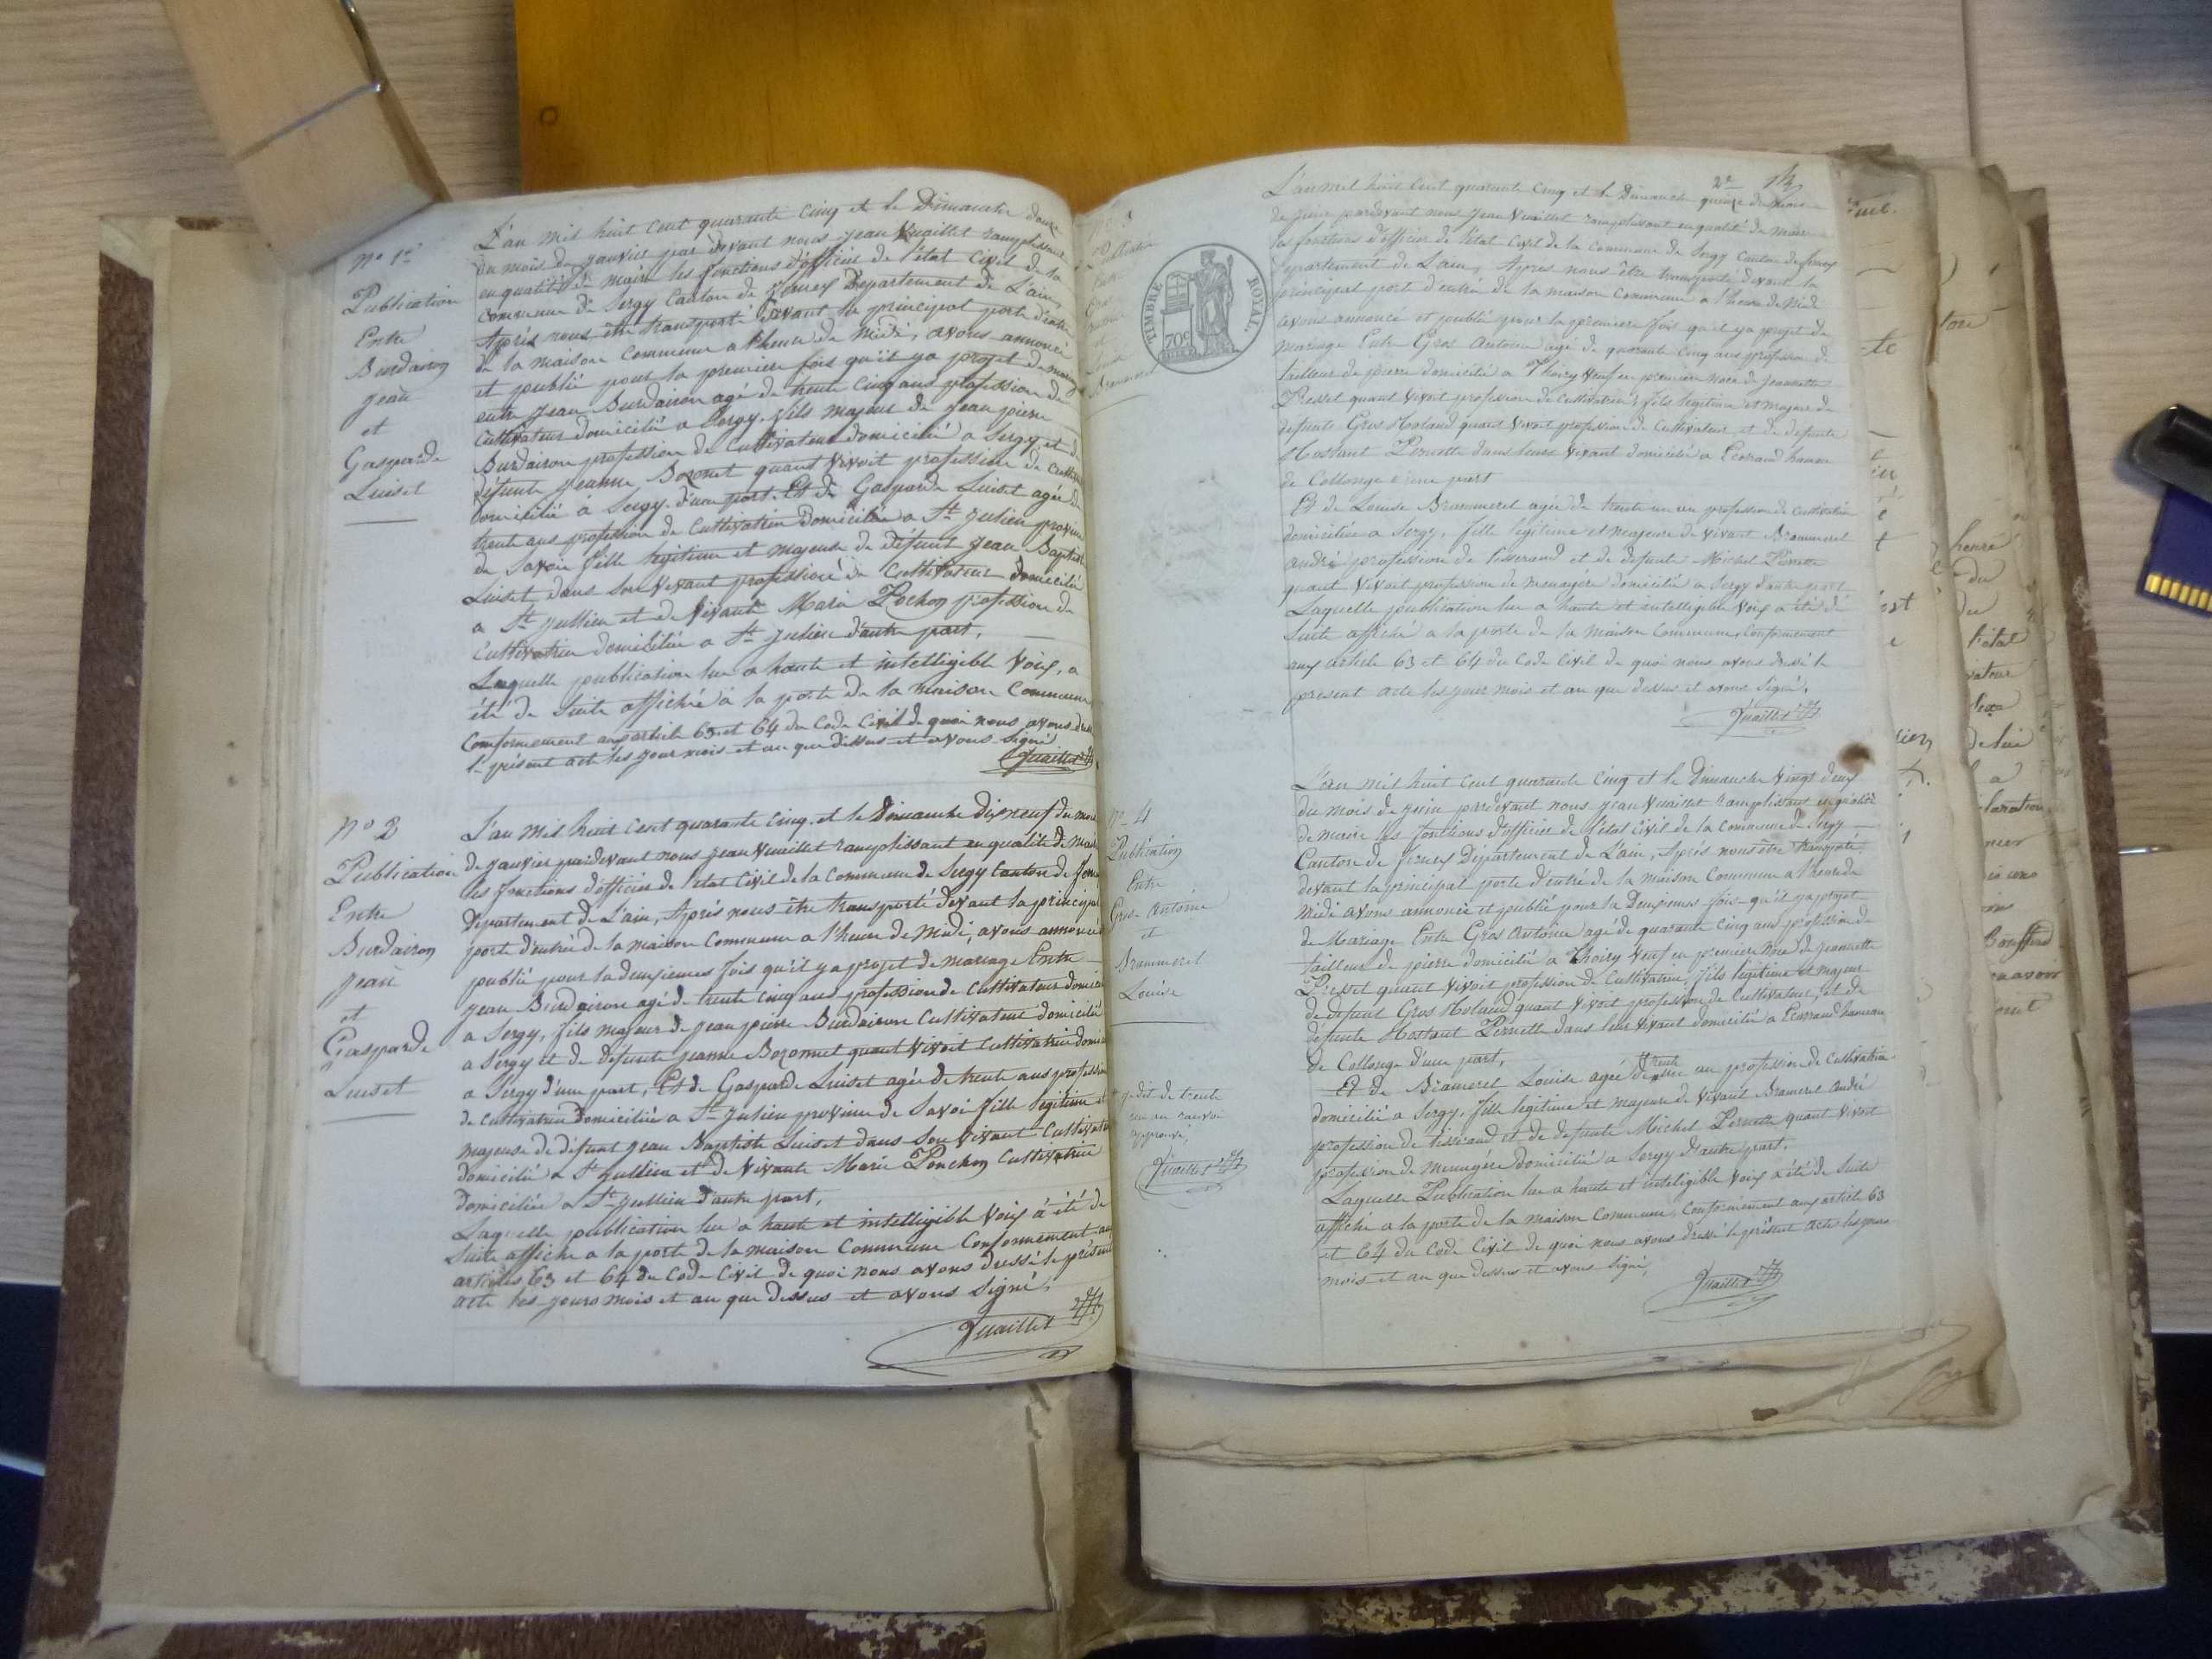 N° 1er
Publication
Entre
Burdairon
jean
et
Gasparde
Luiset
L'an mil huit cent quarante cinq et le Dimanche douze
du mois de janvier par devant nous jean Vuaillet ramplissant
en qualité de maire les fonctions d'officier de l'état Civil de la
commune de Sergy Canton de ferney Département de L'ain,
Après nous être transporté devant la principal porte d'entré
de la maison commune a l'heure de midi, avons annoncé
et publié pour la premiere fois qu'il y a projet de mariage
entre jean Burdairon agé de trente cinq ans profession de
cultivateur domicilié a Sergy. fils majeur de jean pierre
Burdairon profession de cultivateur domicilié a Sergy et de
défunte jeanne Bozonet quant vivoit profession de
domicilié à Sergy. d'une part. Et de Gasparde Luiset agée de
trente ans profession de cultivatrice Domiciliée a St julien province
de Savoie fille legitime et majeure de défunt jean Baptiste
Luiset dans son vivant profession de Cultivateur domicilié
a St jullien et de vivante Marie Pochon profession de
cultivatrice domiciliée a St julien d'autre part.
Laquelle publication lue a haute et intelligible voix, a
été de suite affiché à la porte de la maison commune
Conformement aux article 63 et 64 du Code Civil de quoi nous avons dressé
le présent acte les jour mois et an que dessus et avons signé
Vuaillet
N° 2
Publication
Entre
Burdairon
jean
et
Gasparde
Luiset
L'an mil huit cent quarante cinq et le Dimanche dix neuf du mois
de janvier pardevant nous jean Vuaillet ramplissant en qualité de maire
les fonctions d'officier de l'état Civil de la Commune de Sergy Canton de ferney
Département de L'ain, Après nous être transporté devant la principal
porte d'entrée de la maison commune a l'heure de midi, avons annoncé
publié pour la deuxiemes fois qu'il y a projet de mariage Entre
jean Burdairon agé de trente cinq ans profession de cultivateur domicilié
a Sergy, fils majeur de jean pierre Burdairon Cultivateur domicilié
a Sergy et de defunte jeanne Bozonnet quant vivoit cultivatrice domiciliée
a Sergy d'une part, Et de Gasparde Luiset agée de trente ans profession
de cultivatrice Domiciliée a St julien province de Savoi fille legitime et
majeure de défunt jean Baptiste Luiset dans son vivant Cultivateur
domicilié a St jullien et de vivante Marie Ponchon Cultivatrice
Domiciliée a St jullien d'autre part,
Laquelle publication lue a haute et intelligible voix à été de
suite affiche a la porte de la maison Commune Conformement aux
articles 63 et 64 du Code Civil de quoi nous avons dressé le présent
acte les jours mois et an que dessus et avons Signé,
Vuaillet
TIMBRE ROYAL.
70c
L'an mil huit cent quarante cinq et le Dimanche quinze du mois
de juin pardevant nous jean Vuaillet ramplissant en qualité de maire
les fonctions d'officier de l'état Civil de la commune de Sergy canton de ferney
département de L'ain, Après nous être transporté devant la
principal porte d'entrée de la maison commune a l'heure de midi
avons annoncé et publié pour la premiere fois qu'il y a projet de
mariage Entre Gros Antoine agé de quarante cinq ans profession de
tailleur de pierre domicilié a Thoiry Veuf en premiere noce de jeannette
Presset quant vivoit profession de cultivatrice, fils legitime et majeur de
défunt Gros Roland quant vivoit profession de Cultivateur et de defunte
Mostant Pernette dans leurs vivant domicilié a Ecorand hameau
de Collonge d'une part
Et de Louise Brammerel agée de trente un an profession de cultivatrice
domiciliée a Sergy, fille legitime et majeure de vivant Brammerel
andré profession de tisserand et de defunte Michel Pernette
quant vivoit profession de menagère domicilié a Sergy d'autre part
Laquelle publication lue a haute et intelligible voix a été de
suite affiché a la porte de la maison Commune Conformement
aux article 63 et 64 du Code Civil de quoi nous avons dressé le
présent acte les jour mois et an que dessus et avons signé,
Vuaillet
N° 4
Publication
Entre
Gros Antoine
et
Brammerel
Louise
L'an mil huit cent quarante cinq et le Dimanche vingt deux
du mois de juin pardevant nous jean Vuaillet ramplissant en qualité
de maire les fonctions d'officier de l'état civil de la commune de Sergy
Canton de ferney Département de L'ain, Après nous être transporté
devant la principal porte d'entré de la maison commune a l'heure de
midi avons annoncé et publié pour la Deuxiemes fois qu'il y a projet
de Mariage Entre Gros Antoine agé de quarante cinq ans profession de
tailleur de pierre domicilié a Thoiry Veuf en premiere noce de jeannette
Presset quant vivoit profession de Cultivatrice, fils legitime et majeur
de defunt Gros Roland quant vivoit profession de Cultivateur, et de
défunte Mostant Pernette dans leur vivant domicilié a Ecorand hameau
de Collonge d'une part,
Et de Bramerel Louise agée de trente une an profession de Cultivatrice
domicilié a Sergy, fille legitime et majeure de vivant Bramerel andré
profession de tisserand et de defunte Michel Pernette quant vivoit
profession de menagère domicilié a Sergy d'autre part.
Laquelle Publication lue a haute et inteligible voix a été de suite
affiché a la porte de la maison Commune, Conformément aux article 63
et 64 du Code Civil de quoi nous avons dressé le présent acte les jours
mois et an que dessus et avons signé,
Vuaillet
je dit de trente
un an ranvoi
approuvé,
Vuaillet